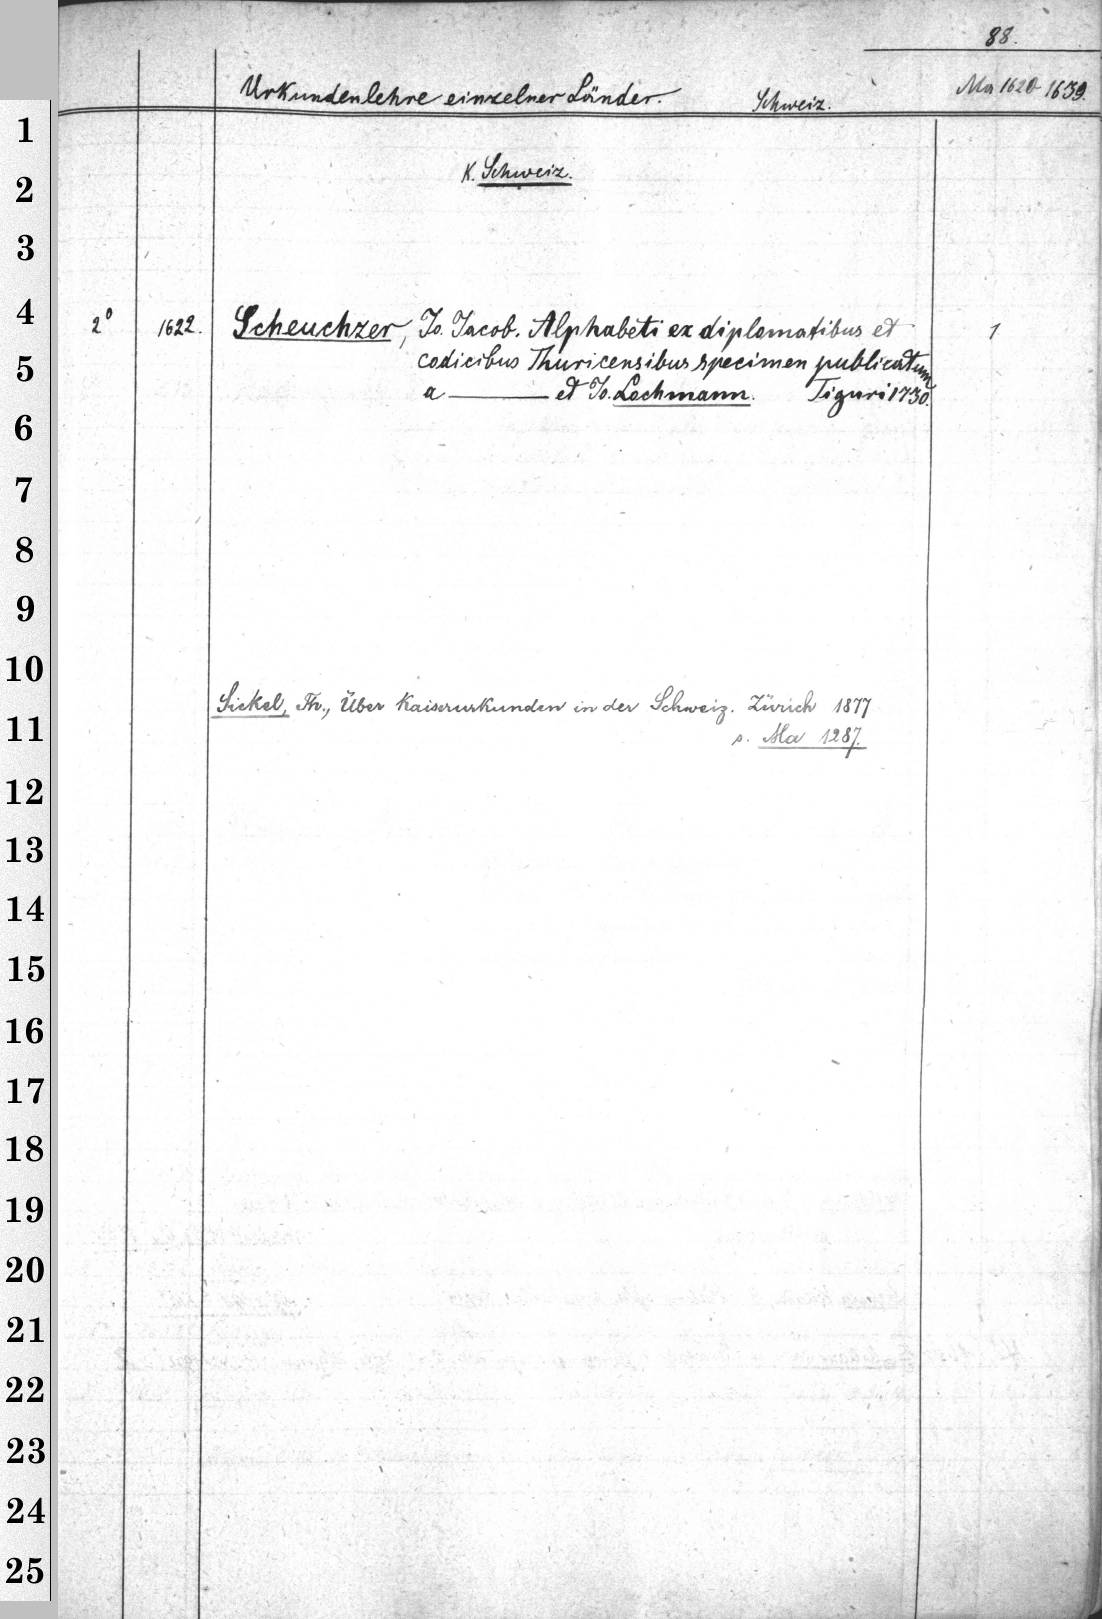 88.
Urkundenlehre einzelner Länder. Schweiz. Ma 1620-1639.
K. Schweiz.
2° 1622. Scheuchzer, Jo. Jacob. Alphabeti ex diplomatibus et 1
codicibus Thuricensibus specimen publicatum
a ——— et Jo. Lochmann. Tiguri 1730.
Sickel, Th., Über Kaiserurkunden in der Schweiz. Zürich 1877
s. Ma 1287.
1
2
3
4
5
6
7
8
9
10
11
12
13
14
15
16
17
18
19
20
21
22
23
24
25